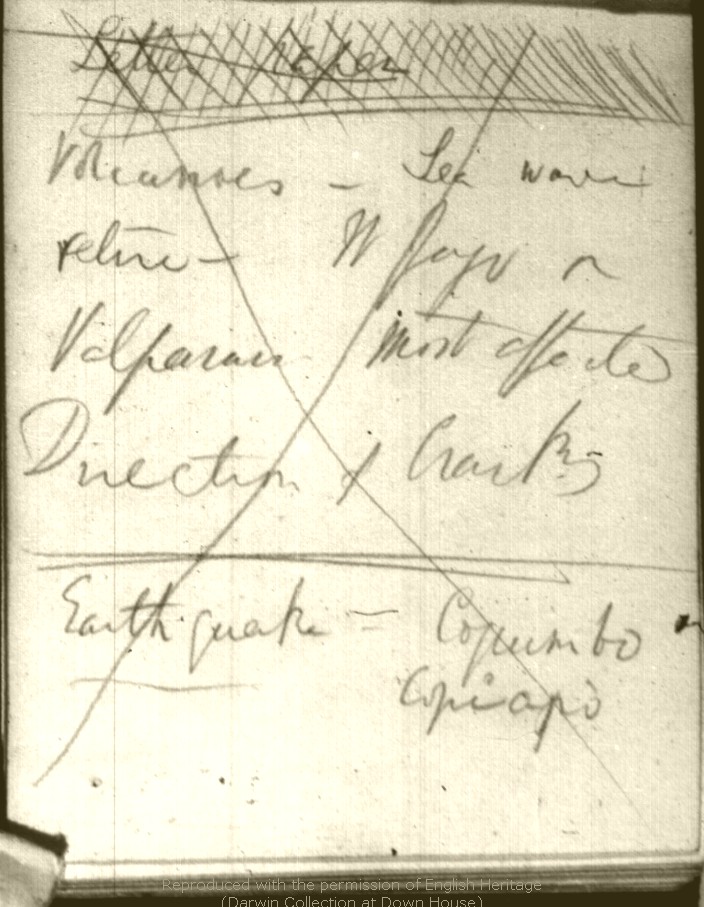 Letter Paper
Volcanoes — Sea wave
retire — W St Jago or
Valparaiso most affected
Direction of Cracks
Earthquake — Coquimbo or
Copiapò
Reproduced with the permission of English Heritage
(Darwin Collection at Down House)